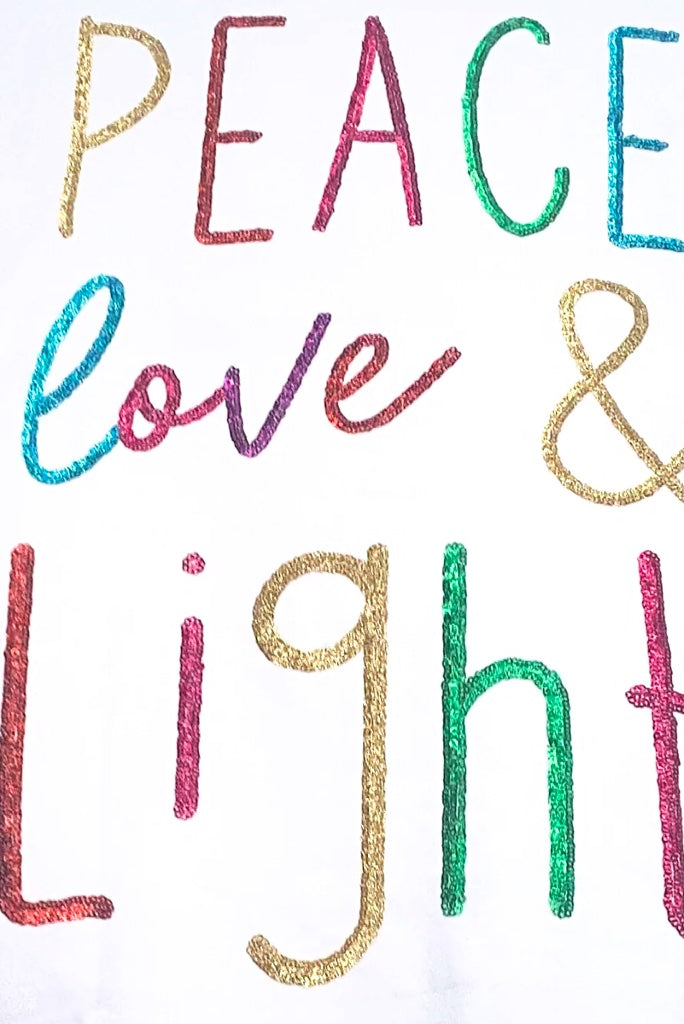 PEACE
love &
Light